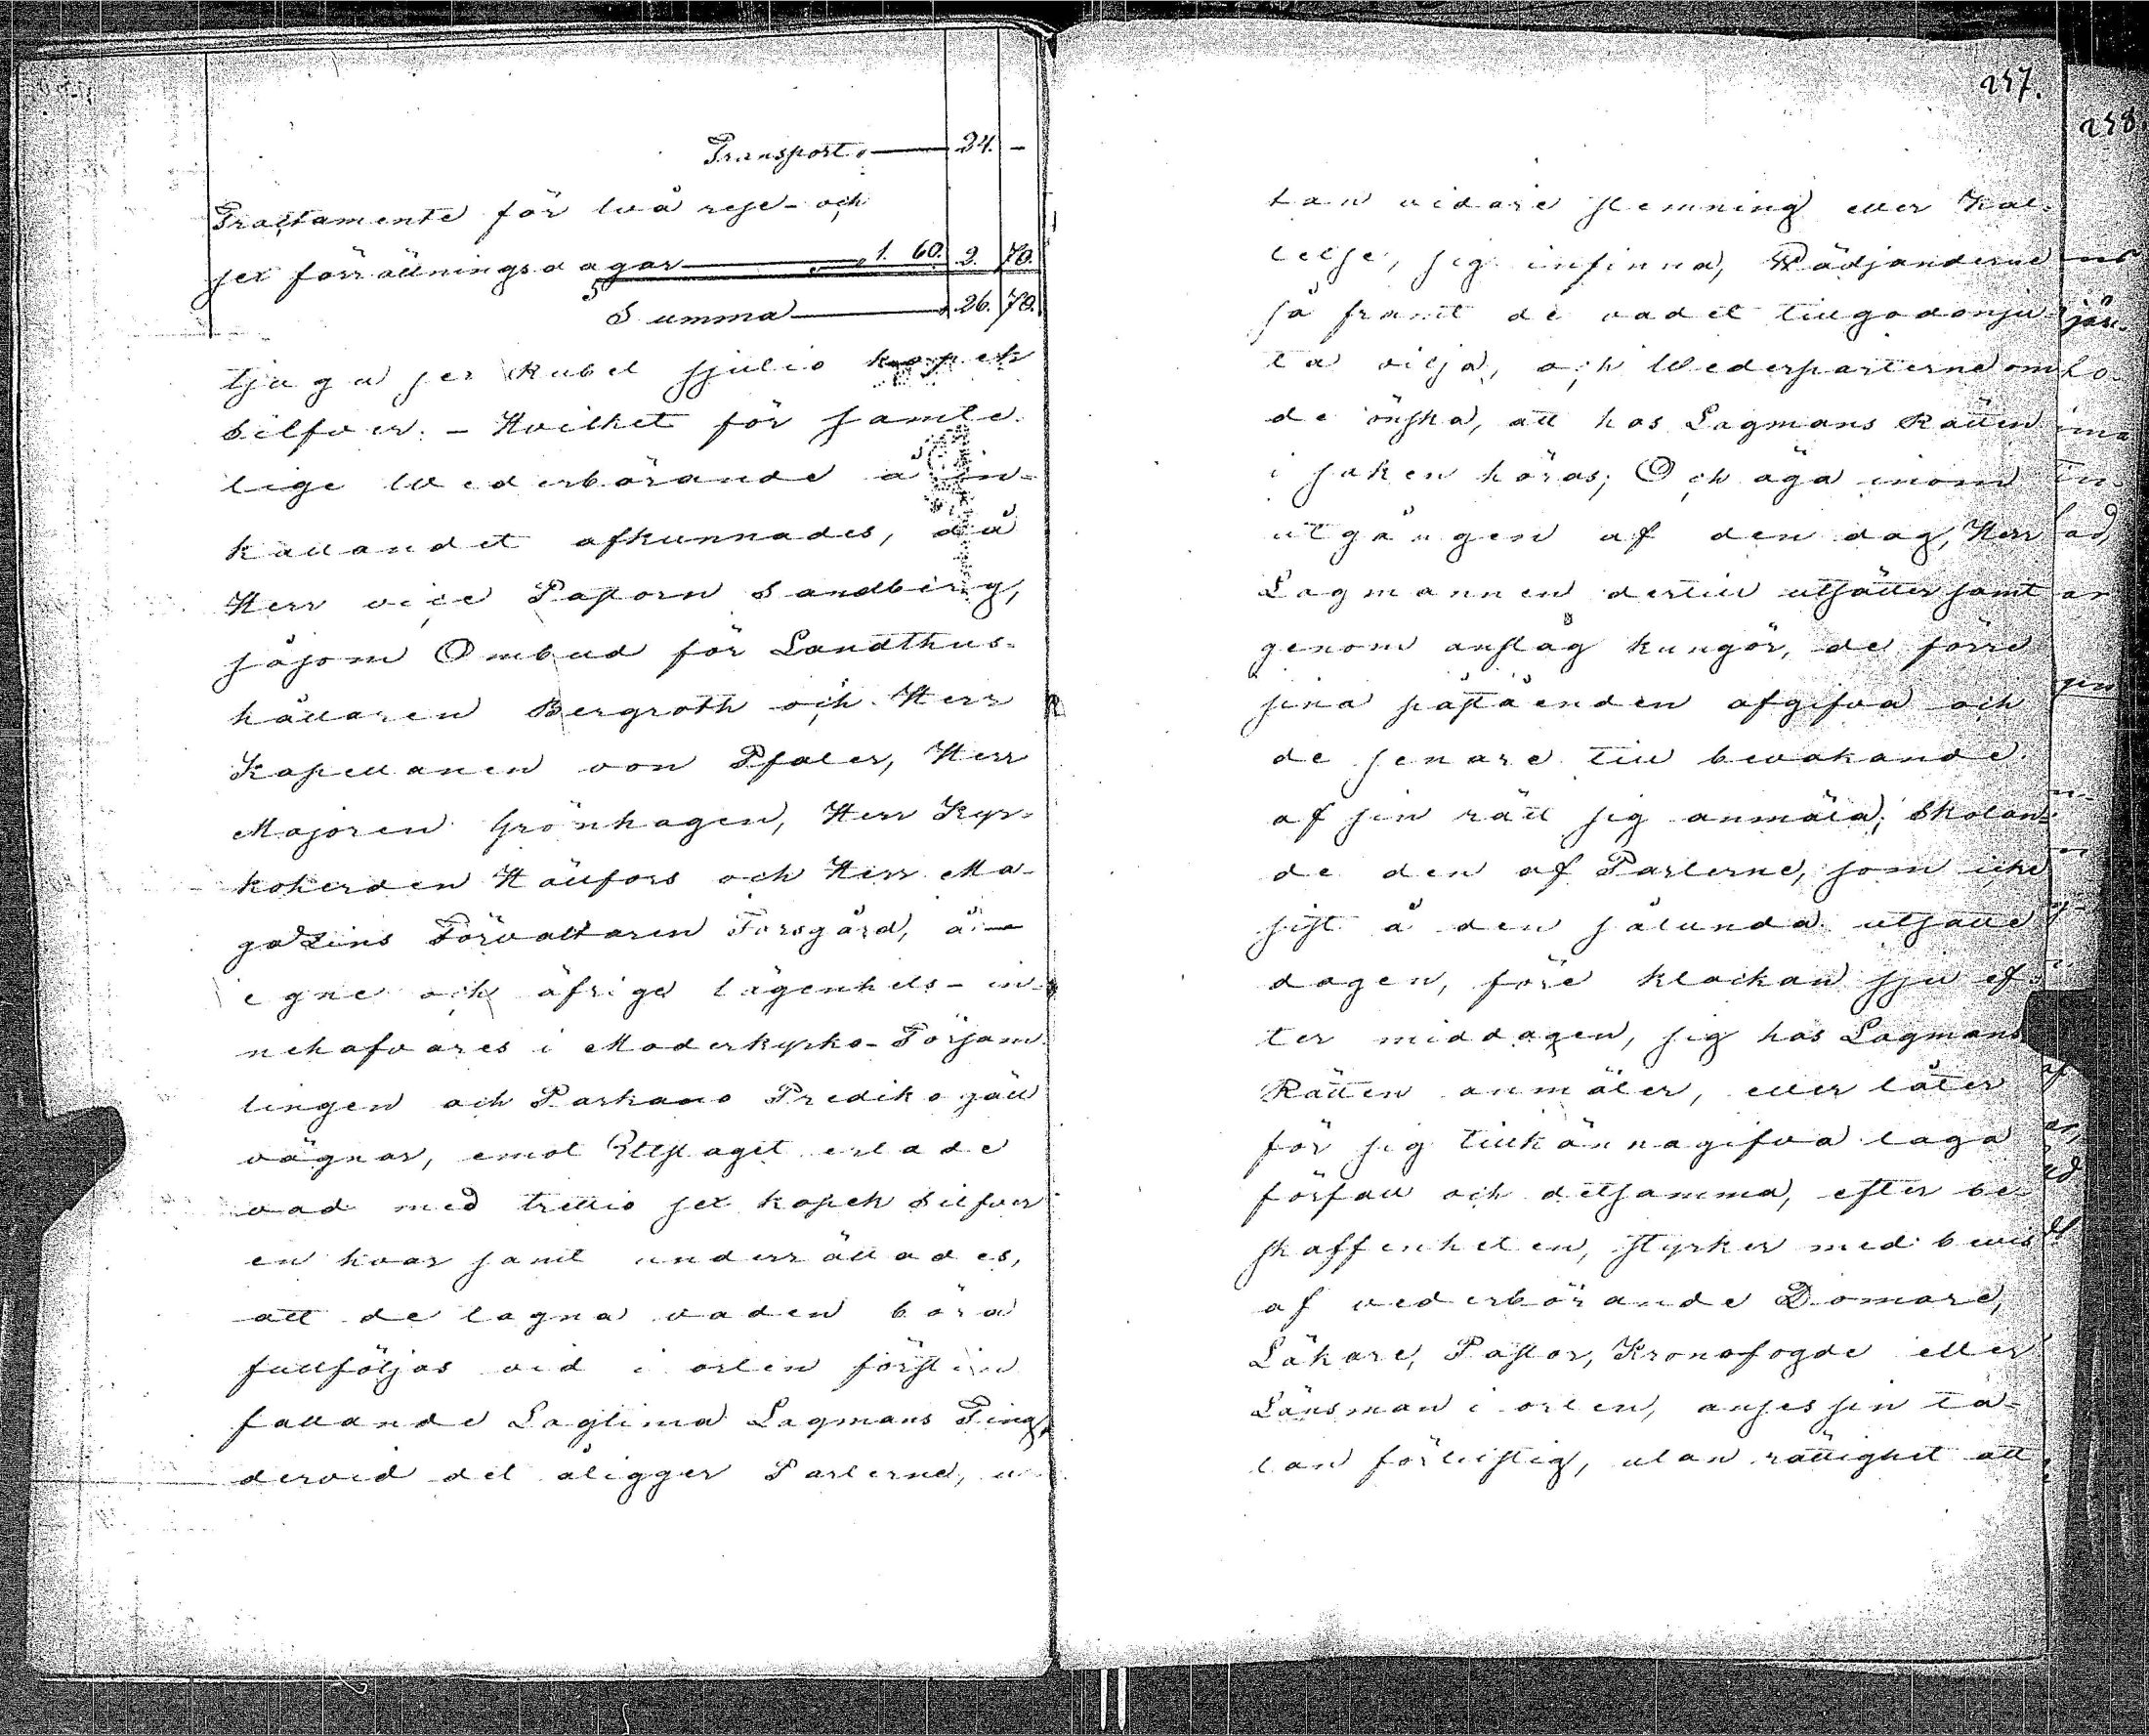 Transport " 24. -
Tractamente för två rese- och
sex förrättningsdagar " 1. 60. 2. 70.
Summa " 26. 70.
tjugu sex Rubel sjutio kopek
Silfver. - Hvilket för samte-
lige Wederbörande å in-
kallandet afkunnades, då
Herr vice Pastorn Sandberg,
såsom Ombud för Landthus-
hållaren Bergroth och Herr
Kapellanen von Pfaler, Herr
Majoren Grönhagen, Herr Kyr-
koherden Hällfors och Herr Ma-
gazins Förvaltaren Forsgård, å
egne och öfrige lägenhets-in-
nehafvares i Moderkyrko-Försam-
lingen och Parkano Predikogäll
vägnar, emot Utslaget erlade
vad med trettio sex kopek Silfver
en hvar samt underrättades,
att de tagna vaden böra
fullföljas vid i orten först in
fallande Lagtima Lagmans Ting,
dervid det åligger Parterne, u-
257.
tan vidare stemning eller Kal-
lelse, sig infinna, Wädjanderne
så framt de vadet tillgodonju-
ta vilja, och Wederparterne om
de önska, att hos Lagmans Rätten
i saken höras; Och äga inom
utgången af den dag, Herr
Lagmannen dertill utsätter samt
genom anslag kungör, de förre
sina påståenden afgifva och
de senare till bevakande
af sin rätt sig anmäla; Skolan-
de den af Parterne, som icke
sist å den sålunda utsatte
dagen, före klockan sju ef-
ter middagen, sig hos Lagmans
Rätten anmäler, eller låter
för sig tillkännagifva laga
förfall och detsamma, efter be-
skaffenheten, styrker med bevis
af vederbörande Domare,
Läkare, Pastor, Kronofogde eller
Länsman i orten, anses sin ta-
lan förlustig, utan rättighet att
258.